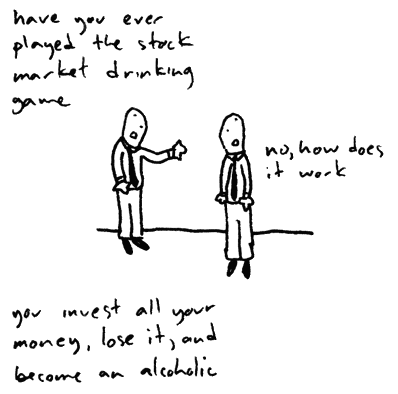 have you ever
played the stock
market drinking
game
no, how does
it work
you invest all your
money, lose it, and
become an alcoholic